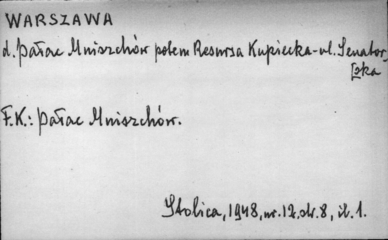 WARSZAWA
d. Pałac Mniszchów potem Resursa Kupiecka-ul. Senator
[ska
F.K.: Pałac Mniszchów.
Stolica, 1948, nr. 12, str. 8, il. 1.